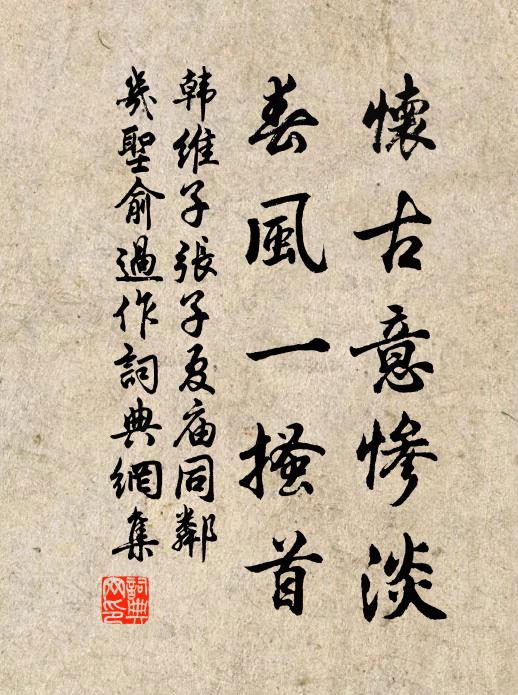 懷古意慘淡
春風一搔首
韩維子張子夏庙同鄰
幾聖俞過作詞典網集
詞典网印